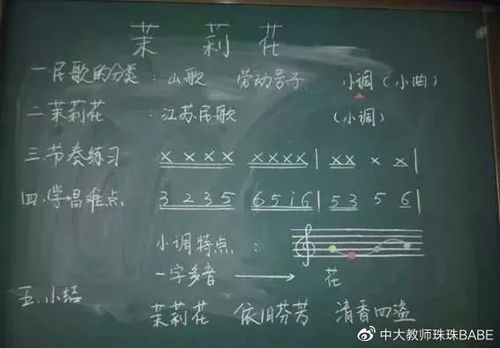 茉莉花
一.民歌的分类：山歌 劳动号子 小调（小曲）
二.茉莉花：江苏民歌 （小调）
三.节奏练习 x x x x x x x x | x x x x |
四.学唱难点 3 2 3 5 6 5 i 6 | 5 3 5 6 |
小调特点：
一字多音 → 花
五.小结 茉莉花 依旧芬芳 清香四溢
中大教师珠珠BABE